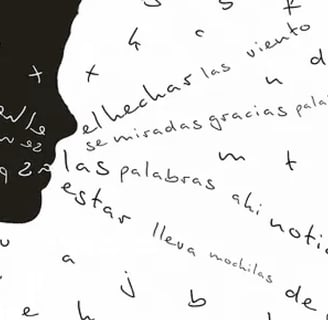 el hechar las viento
se miradas gracias pala
las palabras ahi noti
estar lleva mochilas de